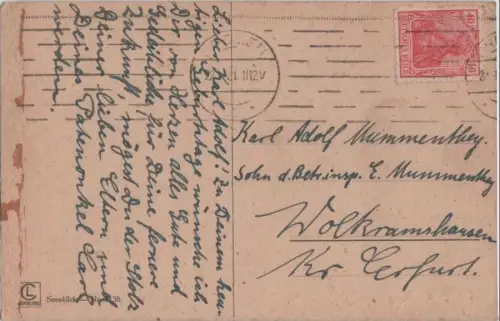 Lieber Karl Adolf! Zu Deinem heu-
tigen Geburtstage wünsche ich
Dir von Herzen alles Gute und
Gedeihliche für Deine fernere
Zukunft, mögest Du der Stolz
Deiner lieben Eltern und
Deines Patenonkel Carl
werden.
1112V
40
Karl Adolf Mummenthey.
Sohn d. Betr.insp. E. Mummenthey
Wolkramshausen
Kr. Erfurt.
Seestücke